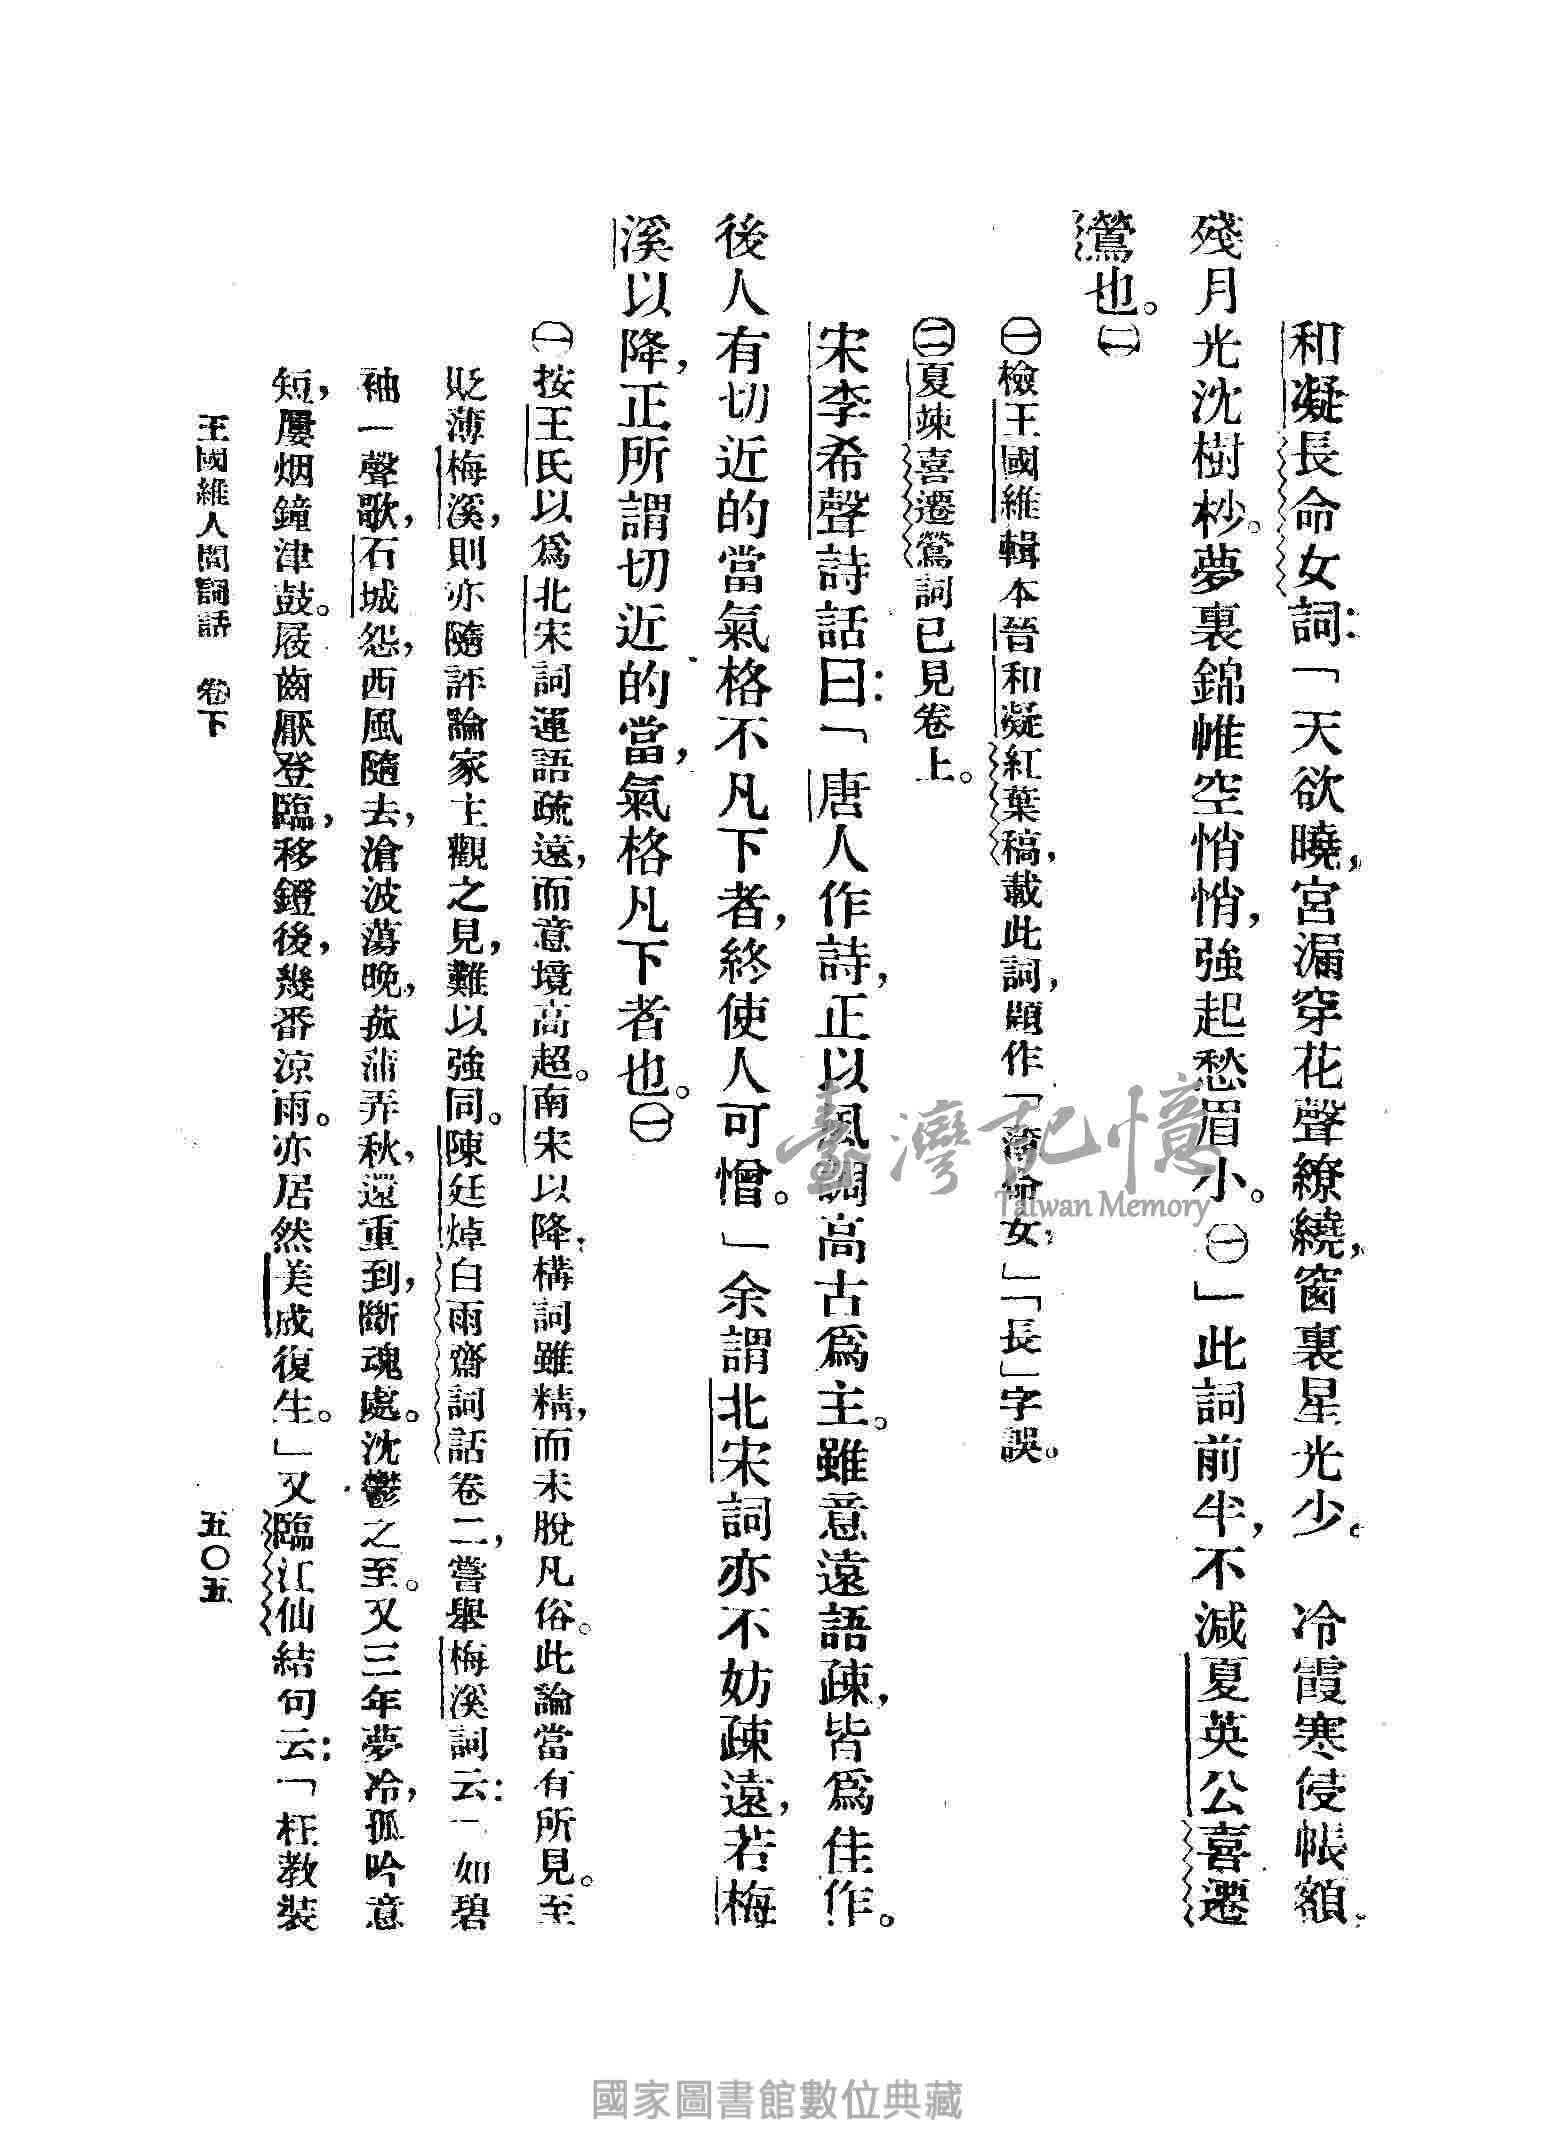 和凝長命女詞：「天欲曉，宮漏穿花聲繚繞，窗裏星光少。　冷霞寒侵帳額，
殘月光沈樹杪。夢裏錦帷空悄悄，強起愁眉小。㊀」此詞前半，不減夏英公喜遷
鶯也。㊁
㊀檢王國維輯本晉和凝紅葉稿，載此詞，題作「薄命女，」「長」字誤。
㊁夏竦喜遷鶯詞已見卷上。
宋李希聲詩話曰：「唐人作詩，正以風調高古爲主。雖意遠語疎，皆爲佳作。
後人有切近的當氣格不凡下者，終使人可憎。」余謂北宋詞亦不妨疎遠，若梅
溪以降，正所謂切近的當，氣格凡下者也。㊀
㊀按王氏以爲北宋詞運語疏遠，而意境高超。南宋以降，構詞雖精，而未脫凡俗。此論當有所見。至
貶薄梅溪，則亦隨評論家主觀之見，難以強同。陳廷焯白雨齋詞話卷二，嘗舉梅溪詞云：「如碧
袖一聲歌，石城怨，西風隨去，滄波蕩晚，菰蒲弄秋，還重到，斷魂處。沈鬱之至。又三年夢冷，孤吟意
短，屢烟鐘津鼓。屐齒厭登臨，移鐙後，幾番涼雨。亦居然美成復生。」又臨江仙結句云：「枉教裝
王國維人間詞話　卷下
五〇五
臺灣記憶
Taiwan Memory
國家圖書館數位典藏